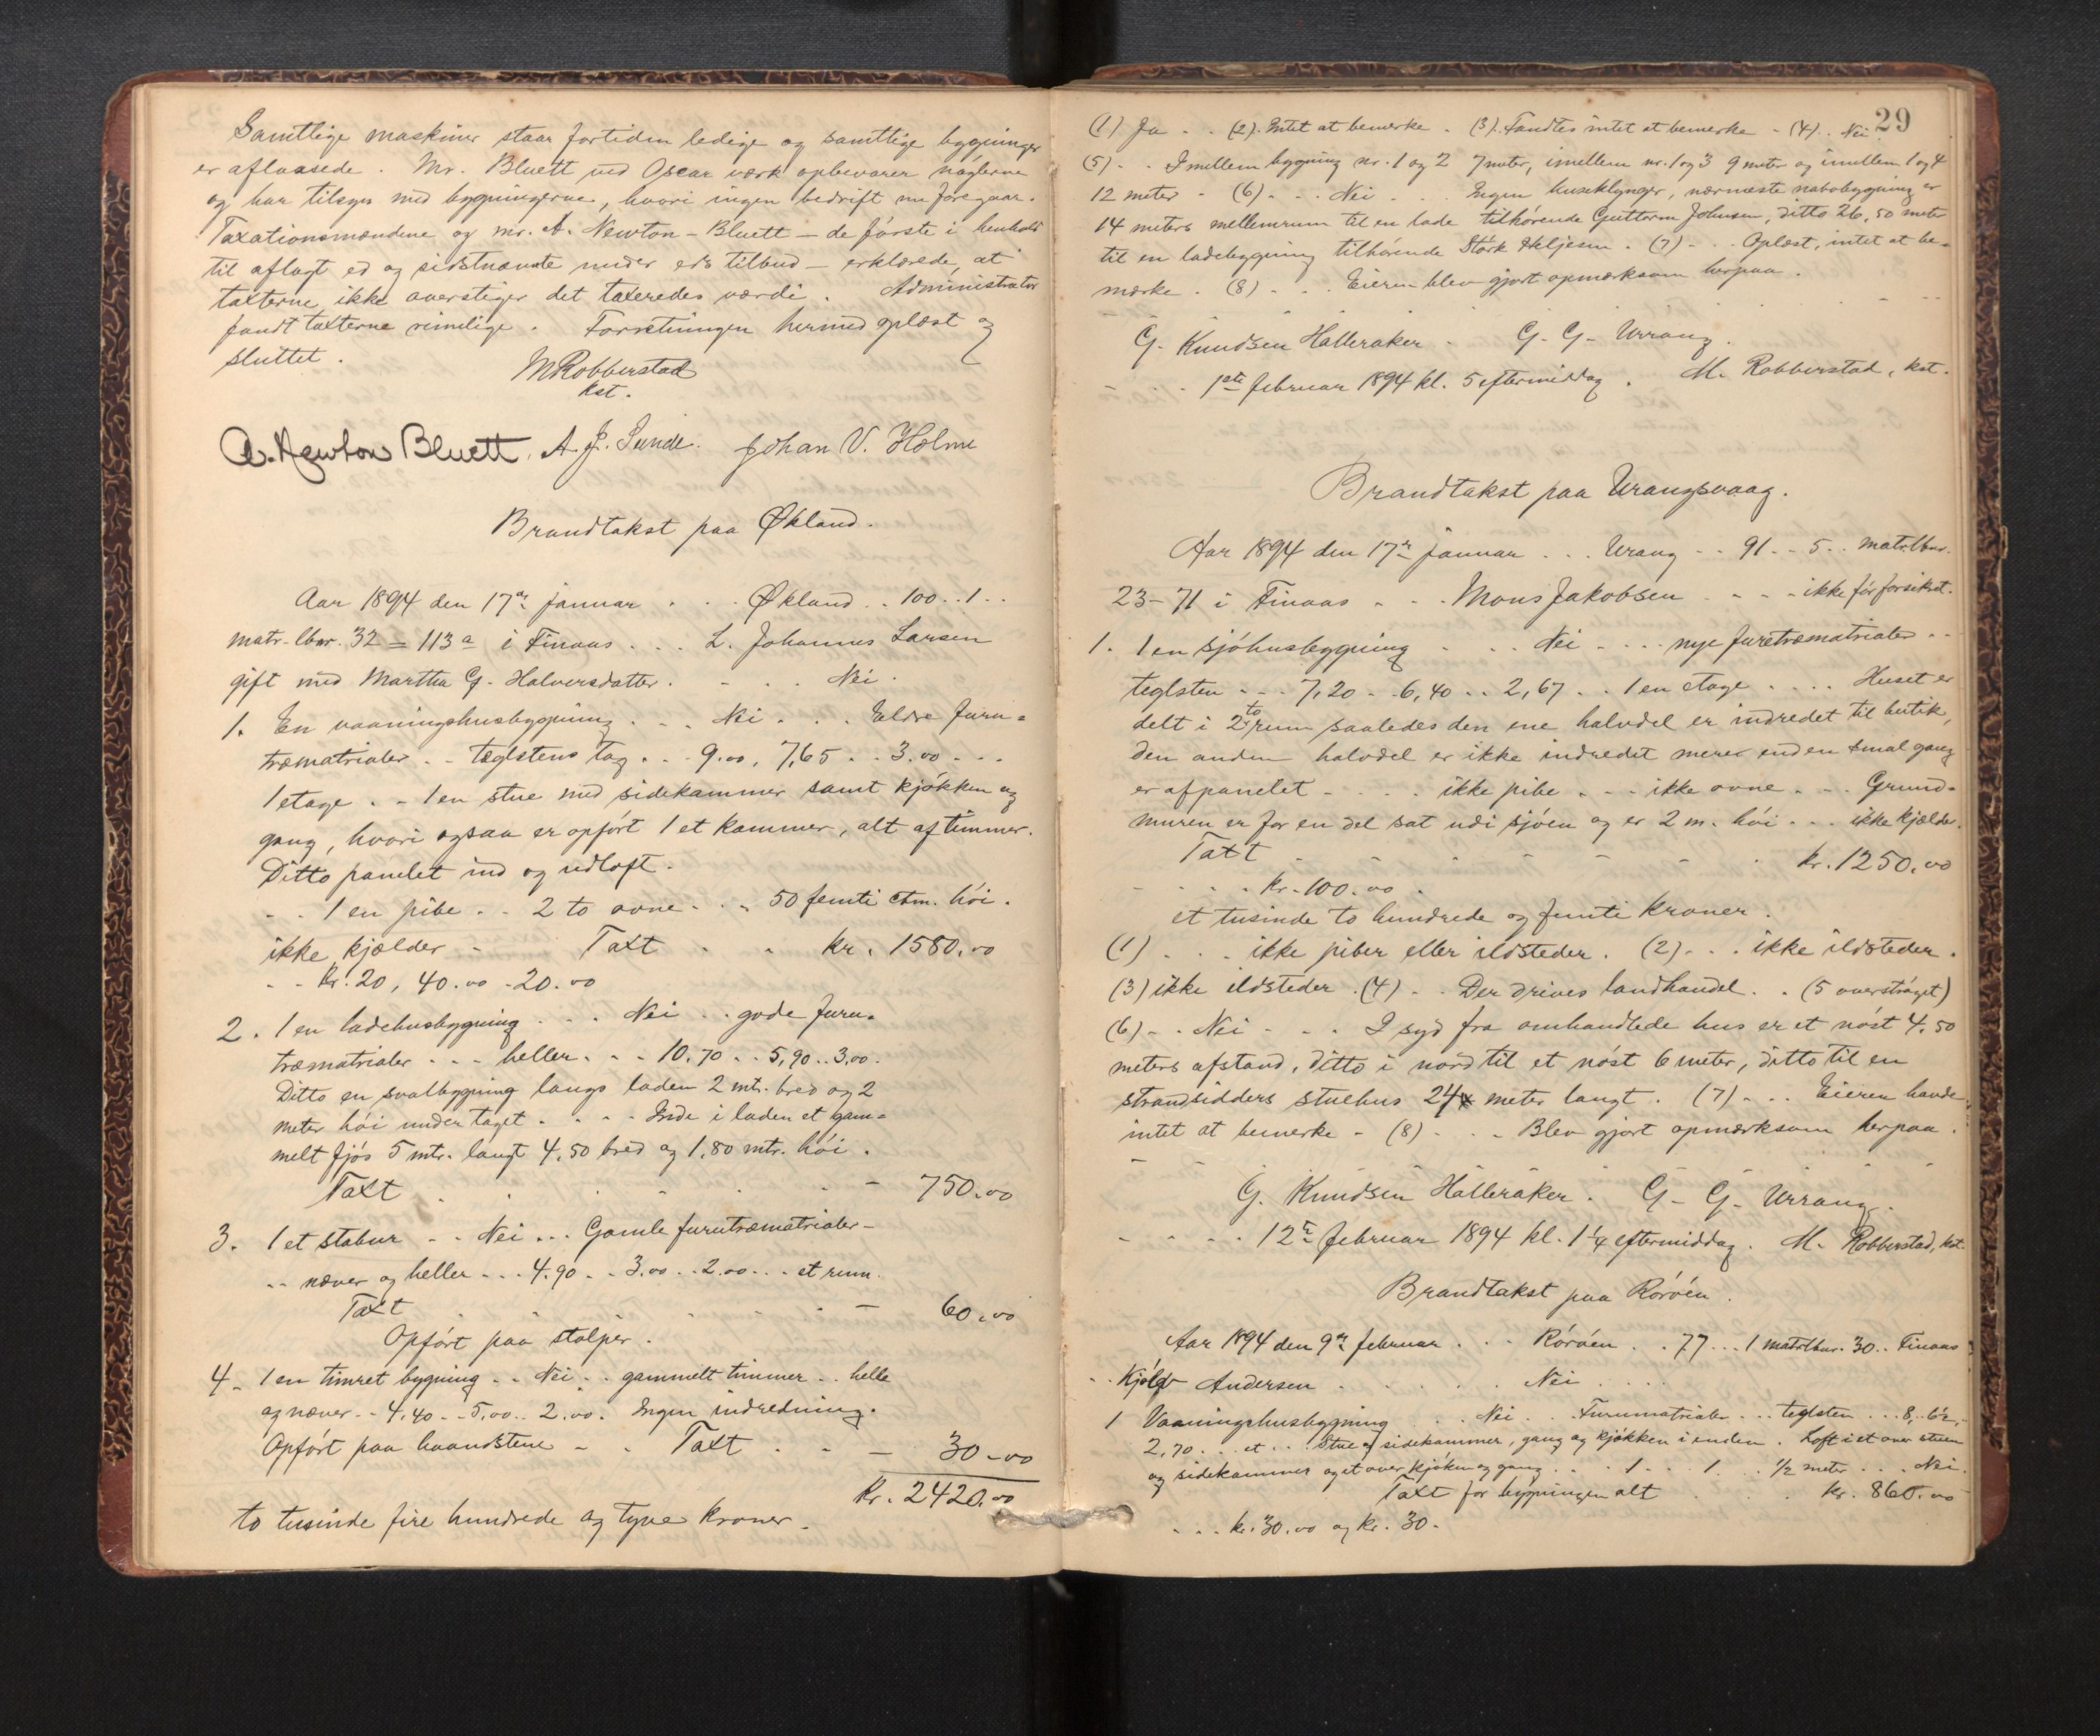 Samtlige maskiner staar fortiden ledige og samtlige bygninger
er aflaasede. Mr. Bluett ved Oscar værk opbevarer nøglerne
og har tilsyn med bygningerne, hvori ingen bedrift nu foregaar.
Taxationsmændene og mr. A. Newton-Bluett – de første i henhold
til aflagt ed og sidstnævnte under eds tilbud – erklærede, at
taxterne ikke overstiger det taxeredes værdi. Administrator
fandt taxterne rimelige. Forretningen hermed oplæst og
sluttet.
M Robberstad
kst.
A. Newton Bluett, A. J. Sunde. Johan V. Holme
Brandtakst paa Økland.
Aar 1894 den 17de januar . . . Økland . . 100 . . 1 . .
matr. lbnr. 32 = 113a i Finaas . . . L. Johannes Larsen
gift med Martha G. Halversdatter. - . . . Nei.
1. En vaaningshusbygning . . . Nei . . . Eldre furu-
træmatrialer . . teglstens tag . . . 9.00. 7,65 . . 3.00 . . .
1 etage . . 1 en stue med sidekammer samt kjøkken og
gang, hvori ogsaa er opført 1 et kammer, alt af tømmer.
Ditto panelet ind og udloft.
. . 1 en pibe . . 2 to ovne . . . 50 femti ctm. høi.
ikke kjælder - Taxt . . kr. 1580.00
- - kr. 20, 40.00 - 20.00
2. 1 en ladehusbygning . . . Nei . . gode furu-
træmatrialer . . . heller . . . 10.70 . . 5,90 . . 3,00.
Ditto en svalbygning langs laden 2 mt. bred og 2
meter høi under taget . . . . Inde i laden et gam-
melt fjøs 5 mtr. langt 4,50 bred og 1,80 mtr. høi.
Taxt . . . . . - 750.00
3. 1 et stabur . . Nei . . . Gamle furutræmatrialer -
. . næver og heller . . . 4.90 . . 3.00 . . 2.00 . . . et rum.
Taxt . . . . . - 60.00
Opført paa stolper.
4. 1 en tømret bygning . . Nei . . gammelt tømmer . . helle
og næver . . 4,40 . . 5,00 . . 2.00. Ingen indredning.
Opført paa haandstene - . Taxt . . - 30.00
kr. 2420.00
to tusinde fire hundrede og tyve kroner.
29
(1) Ja . . (2). Intet at bemerke . (3). Fandtes intet at bemerke - (4) . . Nei
(5) . . Imellem bygning nr. 1 og 2 7 meter, imellem nr. 1 og 3 9 meter og imellem 1 og 4
12 meter - (6) . . . Nei . . . Ingen huseklynger, nærmeste nabobygning er
14 meters mellemrum til en lade tilhørende Guttorm Johnsen, ditto 26,50 meter
til en ladebygning tilhørende Størk Heljesen. (7) . . . Oplæst, intet at be-
mærke . (8) . . . Eieren blev gjort opmærksom herpaa.
G. Knudsen Halleraker . G. G. Urrang.
- . . . 1ste februar 1894 kl. 5 eftermiddag. M. Robberstad, kst.
Brandtakst paa Urangsvaag.
Aar 1894 den 17de januar . . . Urang . . 91 . . 5 . . matr. lbnr.
23-71 i Finaas . . . Mons Jakobsen . . . ikke før forsikret.
1. 1 en sjøhusbygning . . . Nei . . . nye furetræmatrialer . .
teglsten . . . 7,20 . . 6,40 . . 2,67 . . 1 en etage . . . . Huset er
delt i 2 to rum saaledes den ene halvdel er indredet til butik,
den anden halvdel er ikke indredet merer end en smal gang
er afpanelet . . . . ikke pibe . . . ikke ovne . . . Grund-
muren er for en del sat udi sjøen og er 2 m. høi . . . ikke kjælder.
Taxt . . . . . . . kr. 1250.00
- . . . kr. 100.00 .
et tusinde to hundrede og femti kroner.
(1) . . . ikke piber eller ildsteder. (2) . . . ikke ildsteder.
(3) ikke ildsteder . (4) . . Der drives landhandel . . (5 overstrøget)
(6) . . Nei . . . I syd fra omhandlede hus er et nøst 4,50
meters afstand, ditto i nord til et nøst 6 meter, ditto til en
strandsidders stuehus 24 meter langt. (7) . . . Eieren havde
intet at bemerke - (8) . . . Blev gjort opmærksom herpaa.
G. Knudsen Halleraker. G. G. Urrang.
- . . . 12te februar 1894 kl. 1 1/4 eftermiddag. M. Robberstad, kst.
Brandtakst paa Rørøen.
Aar 1894 den 9de februar . . . Rørøen . . 77 . . . 1 matr lbnr. 30 . . Finaas
. . Andersen . . . . . Nei . . . .
1 Vaaningshusbygning . . . Nei . . Furumatrialer . . . teglsten . . . 8,
2,70 . . . et . . . Stue og sidekammer, gang og kjøkken i enden. Loft i et over stuen
og sidekammer og et over kjøken og gang . . . 1 . . . 1 . . 1/2 meter . . . Nei.
Taxt for bygningen alt . . . kr. 860.00
. . . kr. 30.00 og kr. 30.